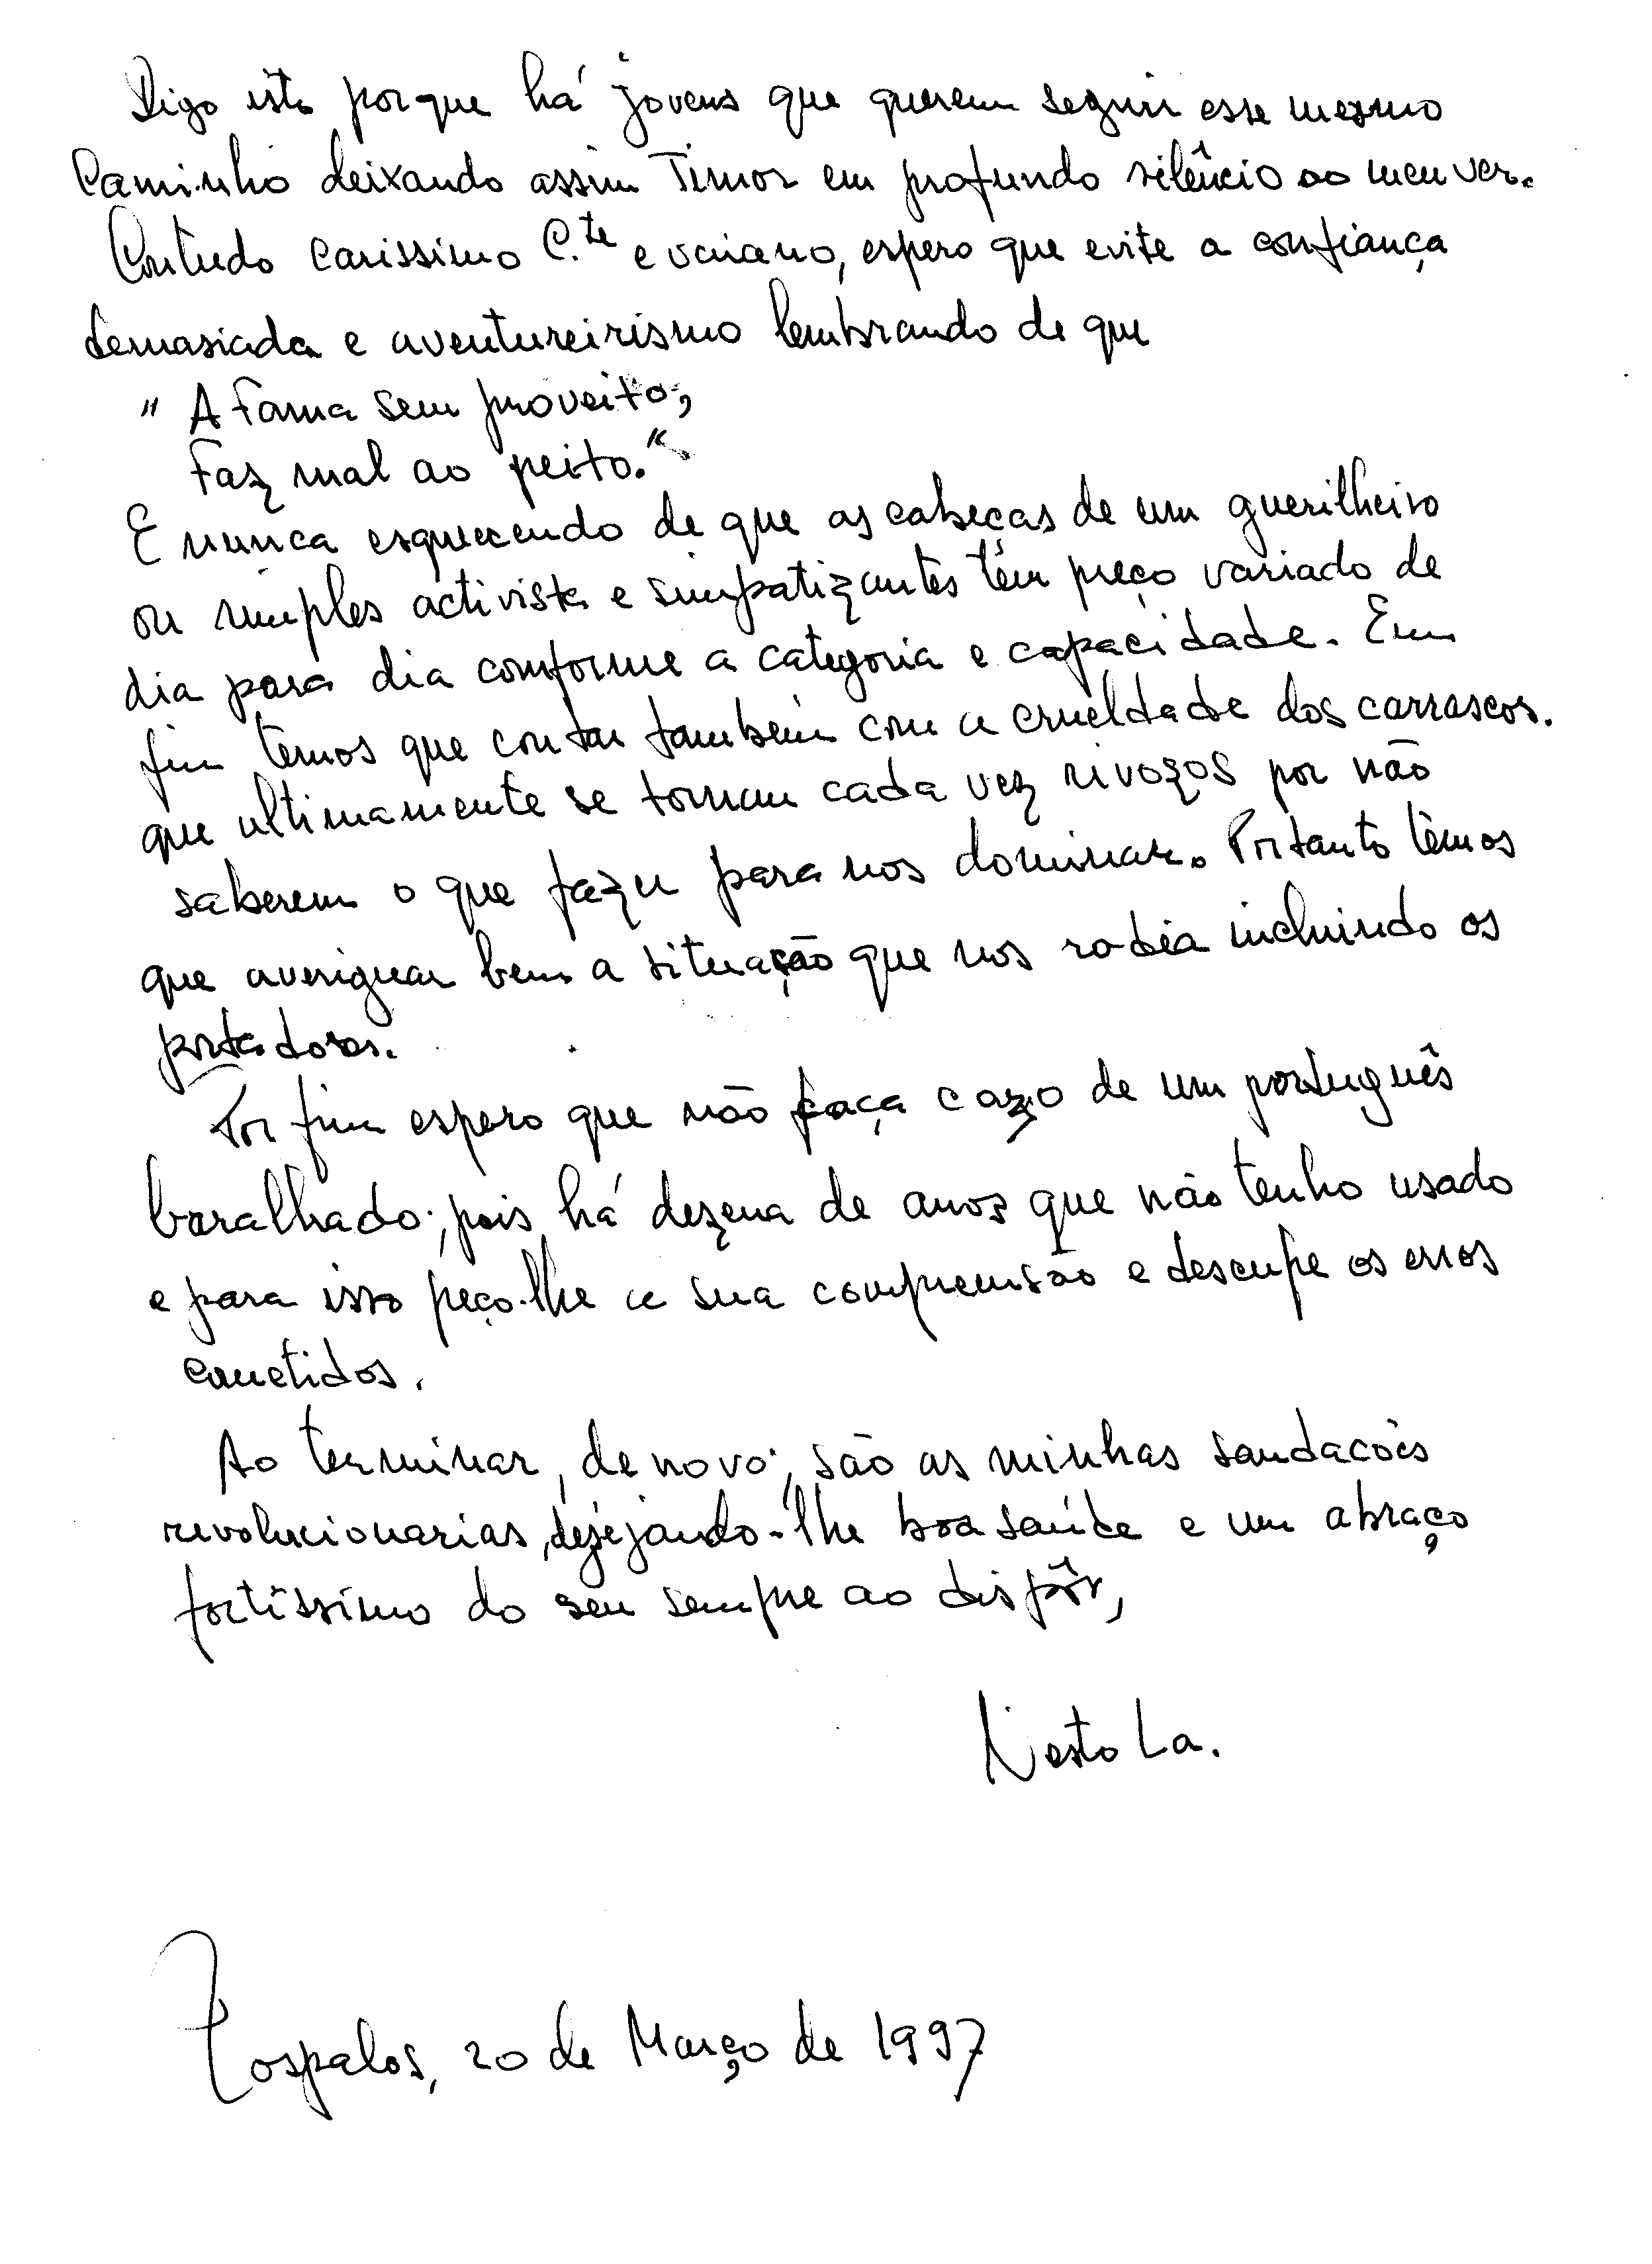 Digo isto porque há jovens que querem seguir esse mesmo
Caminho deixando assim Timor em profundo silêncio ao meu ver.
Contudo Carissimo C.te e vaiano, espero que evite a confiança
demasiada e aventureirismo lembrando de que
" A Fama sem proveito,
Faz mal ao peito."
E nunca esquecendo de que as cabeças de um guerilheiro
ou simples activista e simpatizantes têm preço variado de
dia para dia comforme a categoria e capacidade. Em
fim temos que contar também com a crueldade dos carrascos.
que ultimamente se tornam cada vez rivozos por não
saberem o que fazer para nos dominar. Portanto têmos
que averiguar bem a situação que nos rodeia incluindo os
portadores.
Por fim espero que não faça cazo de um português
baralhado; pois há dezena de anos que não tenho usado
e para isso peço-lhe a sua compreensão e desculpe os erros
cometidos.
Ao terminar, de novo; são as minhas saudacões
revolucionarias, desejando-lhe boa saúde e um abraço
fortíssimo do seu sempre ao dispôr,
Nesto La.
Lospalos, 20 de Março de 1997